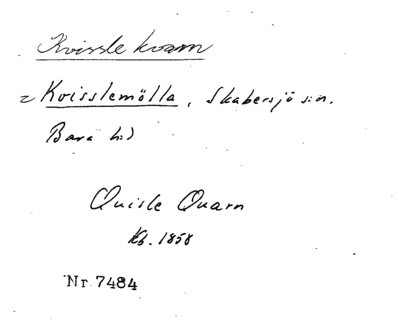 Kvissle kvarn
= Kvisslemölla, Skabersjö sn.
Bara hd
Quisle Quarn
Kb. 1858
Nr 7484